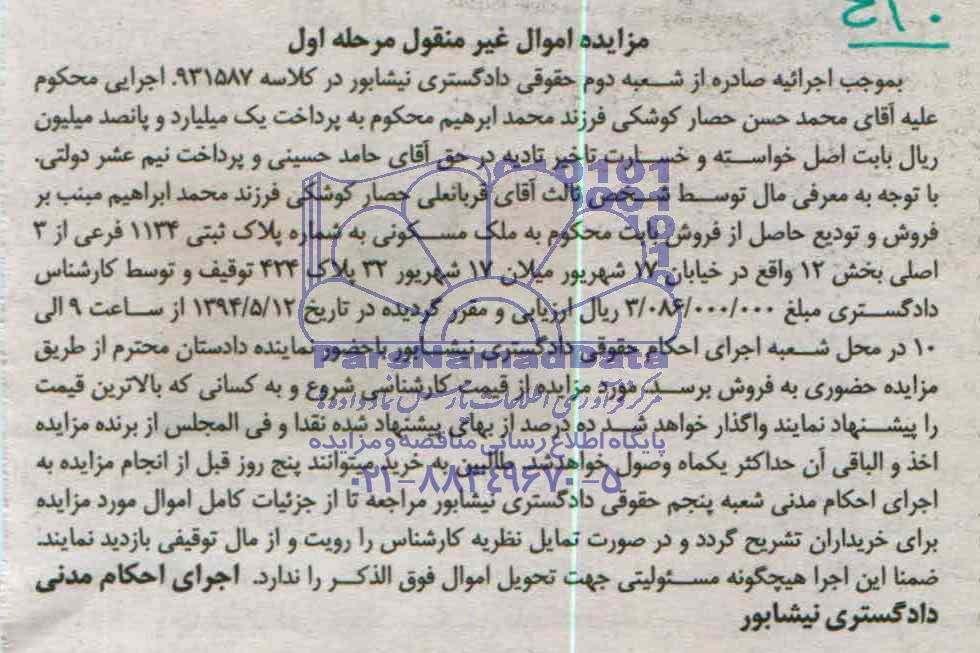 ۴/۰
مزایده اموال غیر منقول مرحله اول
بموجب اجرائیه صادره از شعبه دوم حقوقی دادگستری نیشابور در کلاسه ۹۳۱۵۸۷. اجرایی محکوم
علیه آقای محمد حسن حصار کوشکی فرزند محمد ابرهیم محکوم به پرداخت یک میلیارد و پانصد میلیون
ریال بابت اصل خواسته و خسارت تاخیر تادیه در حق آقای حامد حسینی و پرداخت نیم عشر دولتی.
با توجه به معرفی مال توسط شخص ثالث آقای قربانعلی حصار کوشکی فرزند محمد ابراهیم مبنب بر
فروش و تودیع حاصل از فروش بابت محکوم به ملک مسکونی به شماره پلاک ثبتی ۱۱۳۴ فرعی از ۳
اصلی بخش ۱۲ واقع در خیابان ۱۷ شهریور میلان ۱۷ شهریور ۳۲ پلاک ۴۲۴ توقیف و توسط کارشناس
دادگستری مبلغ ۳/۰۸۶/۰۰۰/۰۰۰ ریال ارزیابی و مقرر گردیده در تاریخ ۱۳۹۴/۵/۱۲ از ساعت ۹ الی
۱۰ در محل شعبه اجرای احکام حقوقی دادگستری نیشابور باحضور نماینده دادستان محترم از طریق
مزایده حضوری به فروش برسد. مورد مزایده از قیمت کارشناسی شروع و به کسانی که بالاترین قیمت
را پیشنهاد نمایند واگذار خواهد شد ده درصد از بهای پیشنهاد شده نقدا و فی المجلس از برنده مزایده
اخذ و الباقی آن حداکثر یکماه وصول خواهدشد. طالبین به خرید میتوانند پنج روز قبل از انجام مزایده به
اجرای احکام مدنی شعبه پنجم حقوقی دادگستری نیشابور مراجعه تا از جزئیات کامل اموال مورد مزایده
برای خریداران تشریح گردد و در صورت تمایل نظریه کارشناس را رویت و از مال توقیفی بازدید نمایند.
ضمنا این اجرا هیچگونه مسئولیتی جهت تحویل اموال فوق الذکر را ندارد. اجرای احکام مدنی
دادگستری نیشابور
ParsNamadData
مرکز فرآوری اطلاعات پارس نماد داده ها
پایگاه اطلاع رسانی مناقصه و مزایده
۰۲۱-۸۸۳۴۹۶۷۰-۵